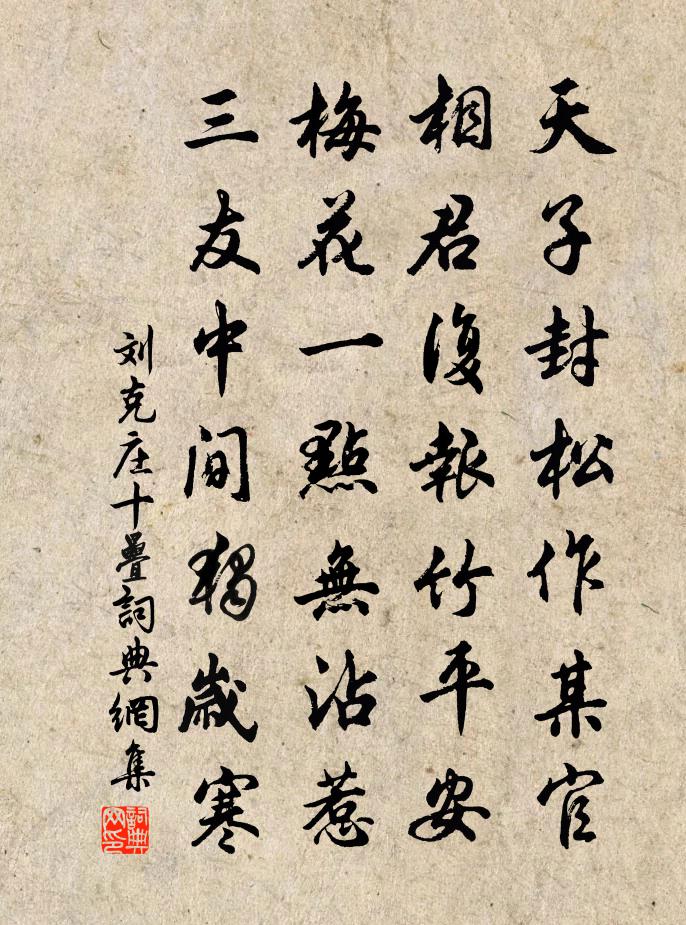 天子封松作某官
相君復報竹平安
梅花一點無沾惹
三友中間獨歲寒
刘克庄十疊詞典網集
詞典网印